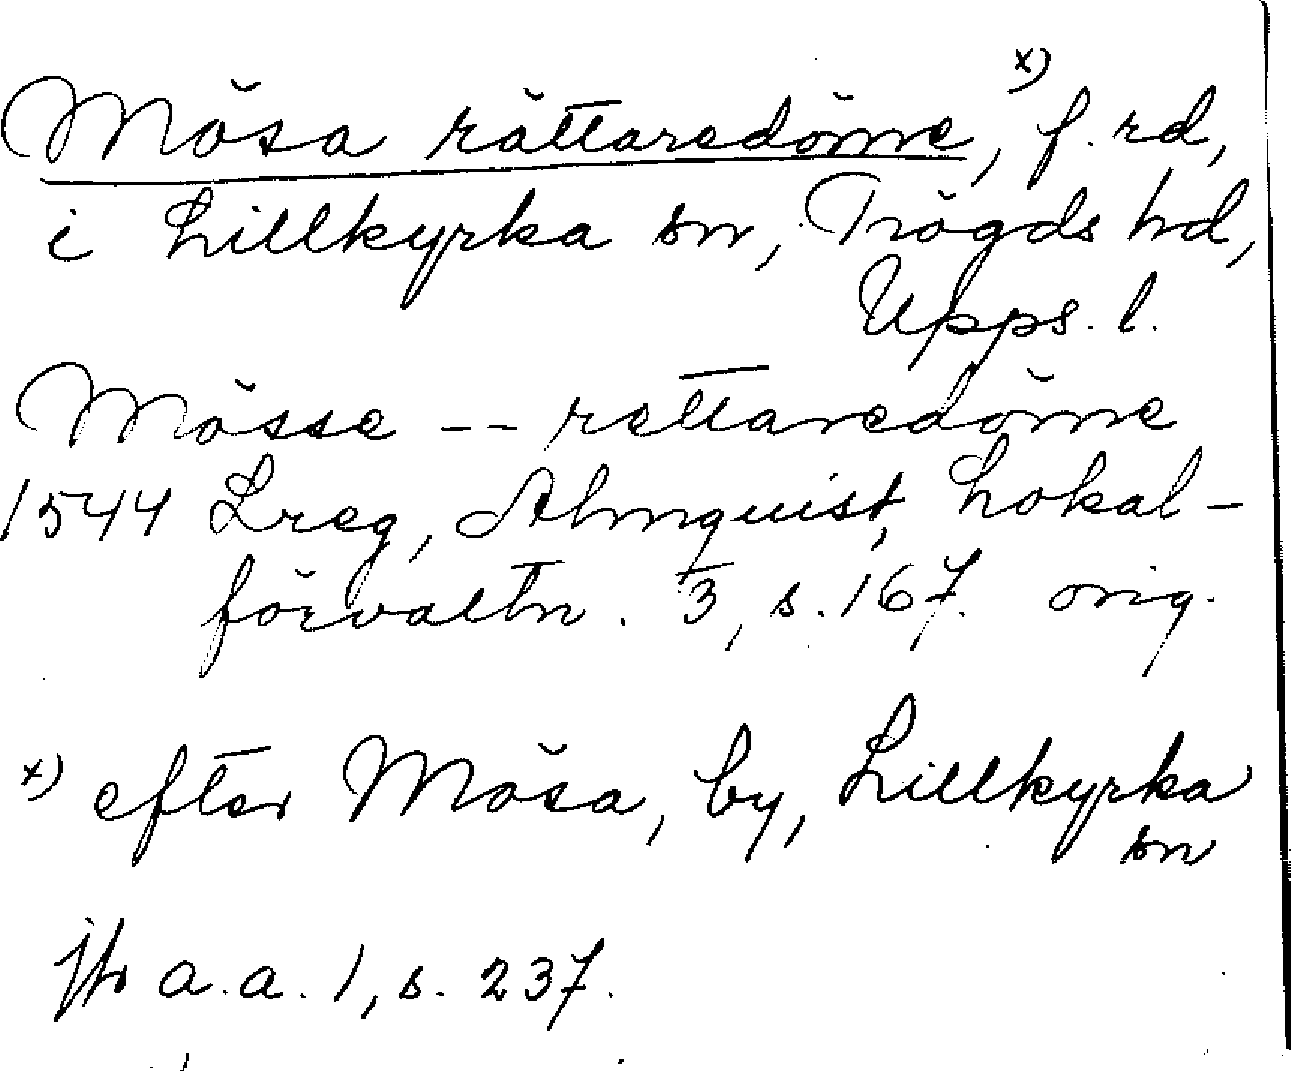 Mösa rättaredöme, x) f. rd,
i Lillkyrka sn, Trögds hd,
Upps. l.
Mösse -- rettaredöme
1544 Lreg, Almquist, Lokal-
förvaltn. 3, s. 167. orig.
x) efter Mösa, by, Lillkyrka
sn
jfr a.a. 1, s. 237.